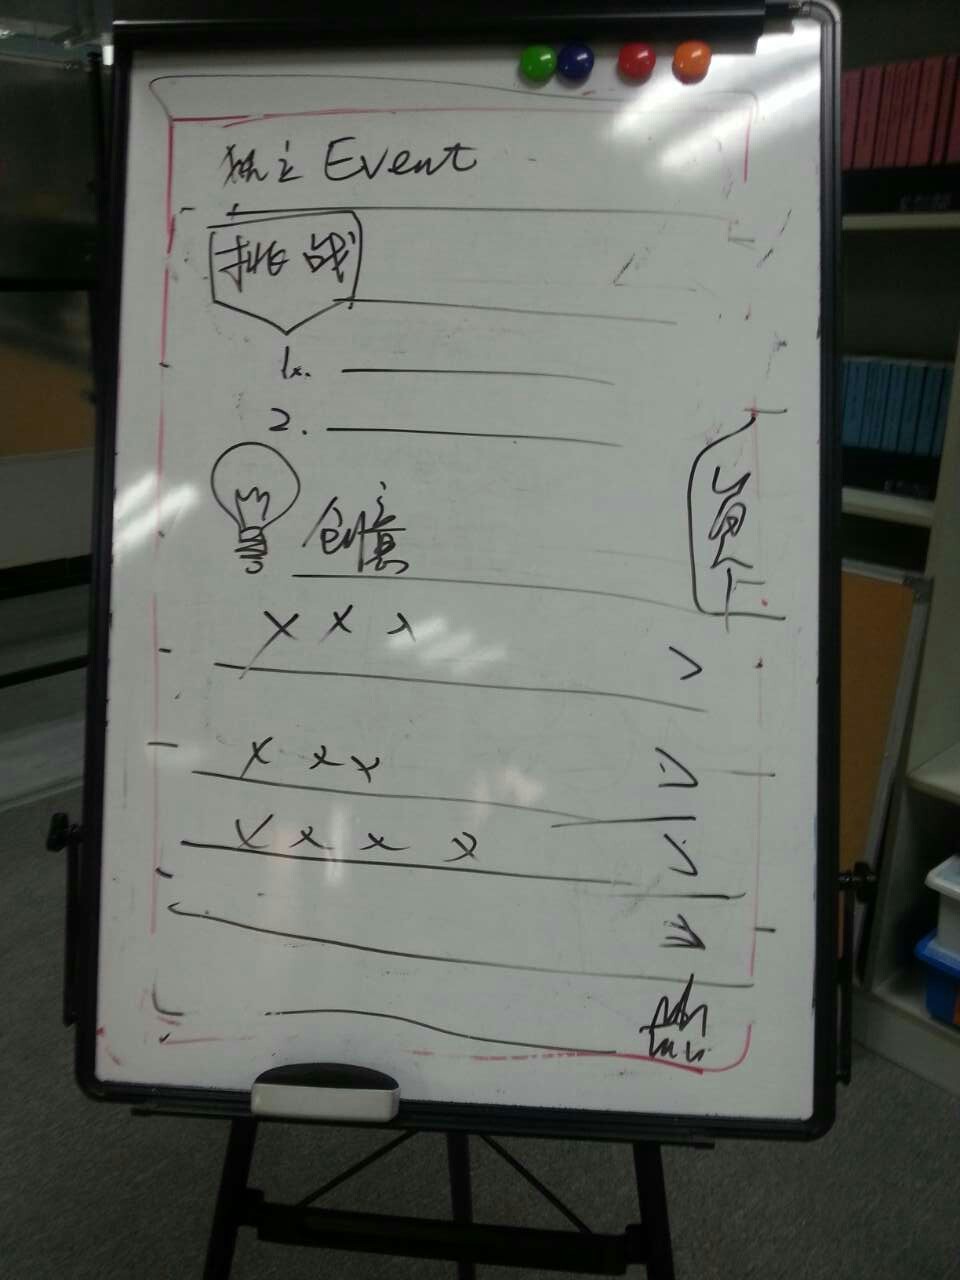 独立 Event
挑战
1.
2.
创意
x x x
>
x x x
>
x x x x
>